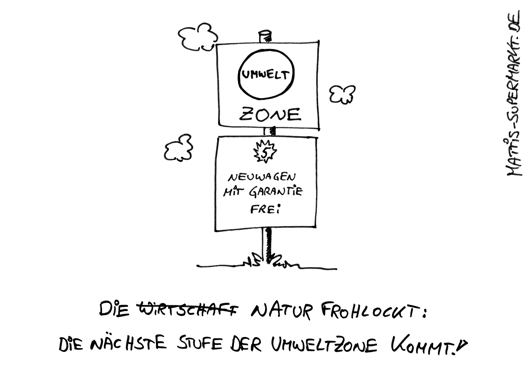 UMWELT
ZONE
5
NEUWAGEN
MIT GARANTIE
FREI
MATTIS-SUPERMARKT.DE
DIE WIRTSCHAFT NATUR FROHLOCKT:
DIE NÄCHSTE STUFE DER UMWELTZONE KOMMT!